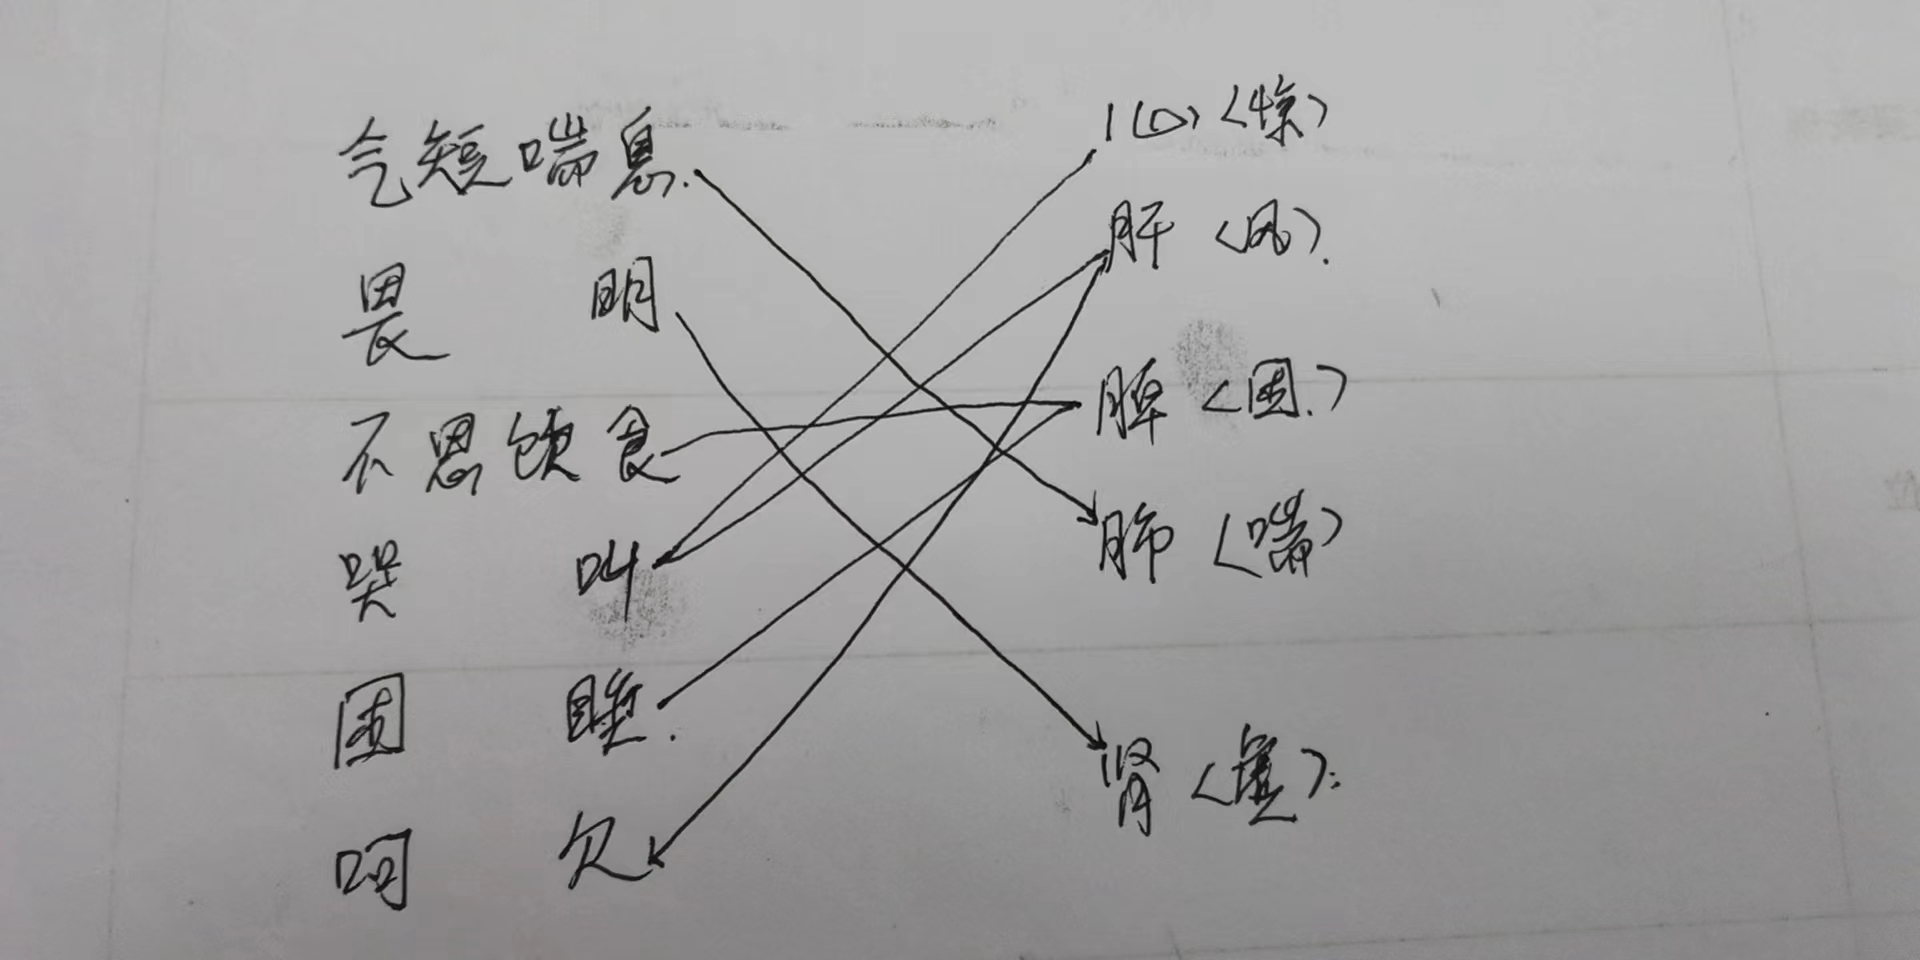 气短喘息. 心(惊)
畏 明 肝(风).
不思饮食 脾(困.)
哭 叫 肺(喘)
困 睡. 肾(虚).
呵 欠